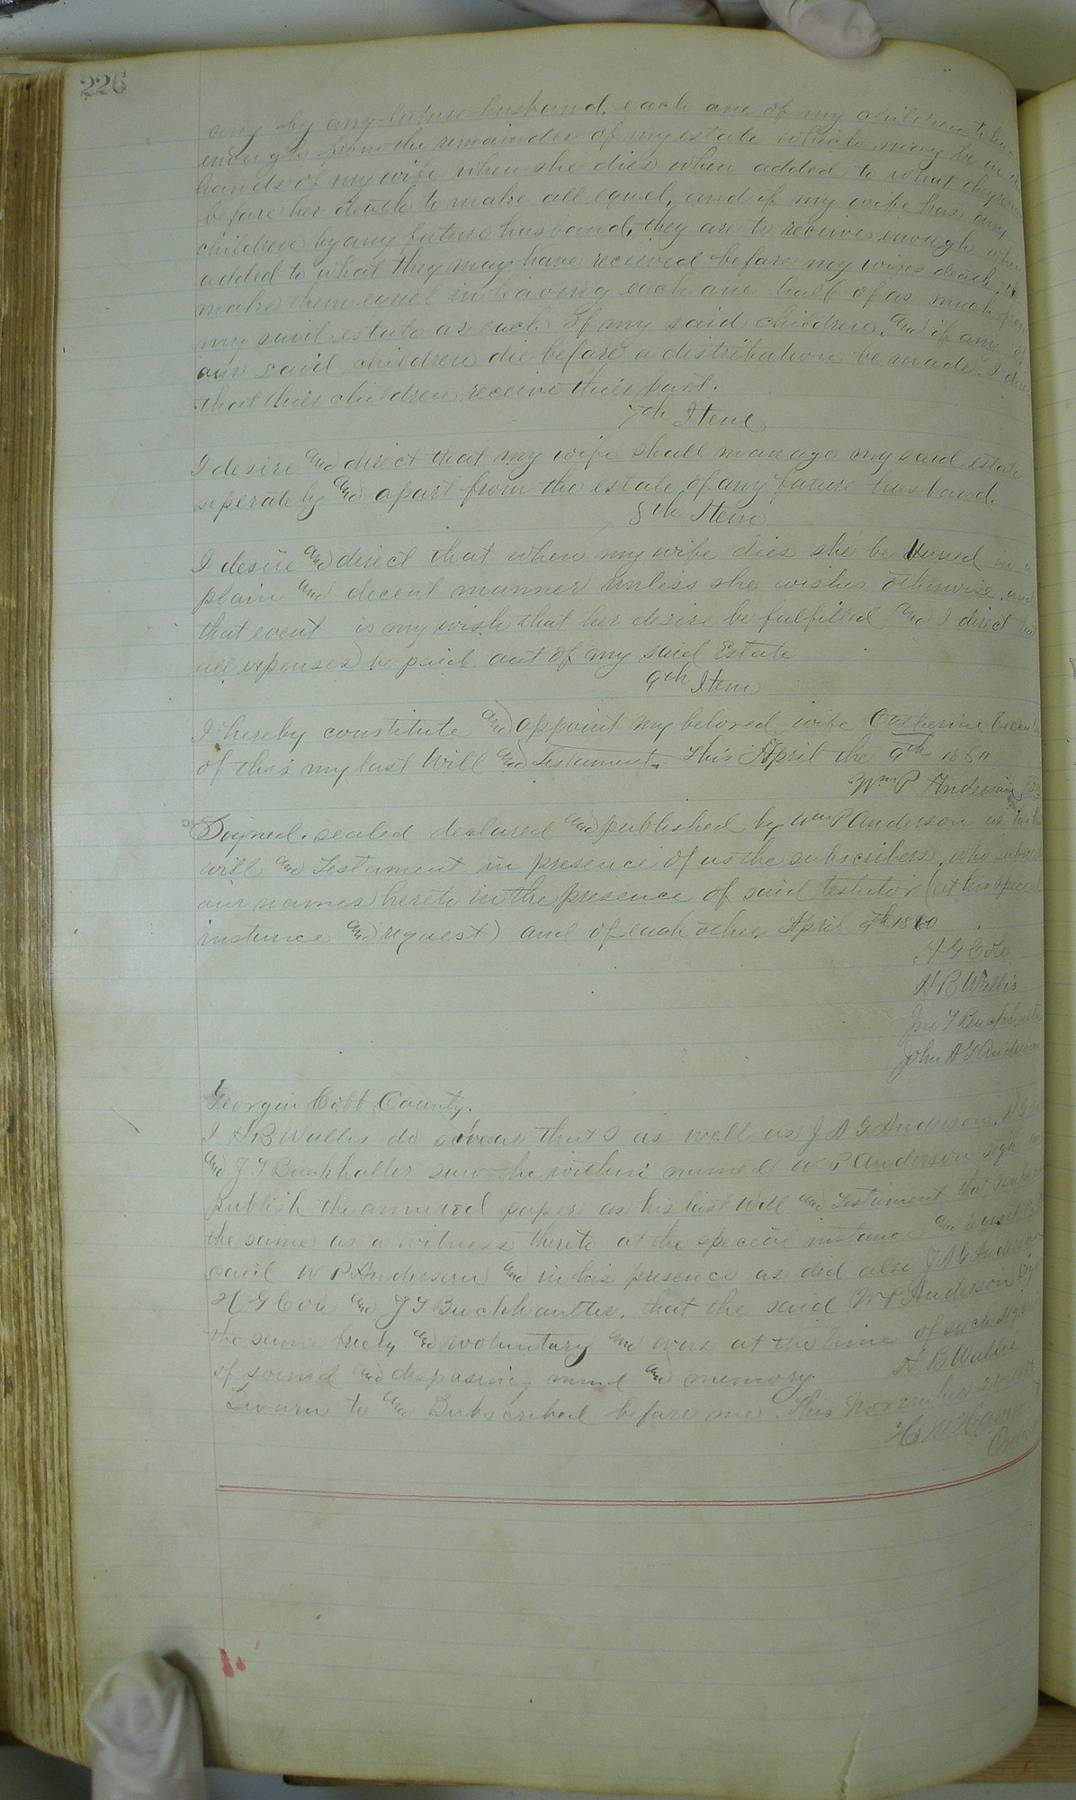 226
any by any future husband. each one of my children to have
enough from the remainder of my estate which may be in
hands of my wife when she dies when added to what they
before her death to make all equal, and if my wife has any
children by any future husband, they are to receive enough when
added to what they may have received before my wifes death, to
make them equel in having each one half of as much
my said estate as each of my said children. and if any of
our said children die before a distribution be made I
that their children receive their part.
7th Item
I desire and direct that my wife shall manage my said estate
seperately and apart from the estate of any future husband.
8th Item
I desire and direct that when my wife dies she be buried in a
plain and decent manner unless she wishes otherwise and
that event is my wish that her desire be fulfilled and I direct
all expenses be paid out of my said Estate
9th Item
I hereby constitute and appoint my beloved wife Catherine
of this my last Will and Testament. This April the 9th 1860
Wm P Anderson
Signed. sealed declared and published by Wm P Anderson as
will and Testament in presence of us the subscribers, who
our names hereto in the presence of said testator (at his special
instance and request) and of each other. April 9th 1860
A G Cole
H B Wallis
Jno T Buckhalter
John A G Anderson
Georgia Cobb County.
I H B Wallis do swear that I as well as J A G Anderson,
and J T Buckhalter saw the within named W P Anderson sign
publish the annexed paper as his last Will and Testament that
the same as a witness thereto at the special instance and
said W P Anderson and in his presence as did also J A G Anderson
H G Cole and J T Buckhaulter, that the said W P Anderson
the same freely and voluntary and was at the time of
of sound and disposing mind and memory.
H B Wallis
Sworn to and Subscribed before me. This November